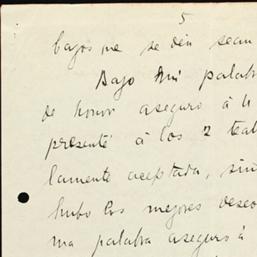 5
bajos me se den sean
Bajo mi palabra
de honor aseguro á U
presenté á los 2 teat
lamente aceptada, sin
hubo los mejores deseo
ma palabra aseguro á